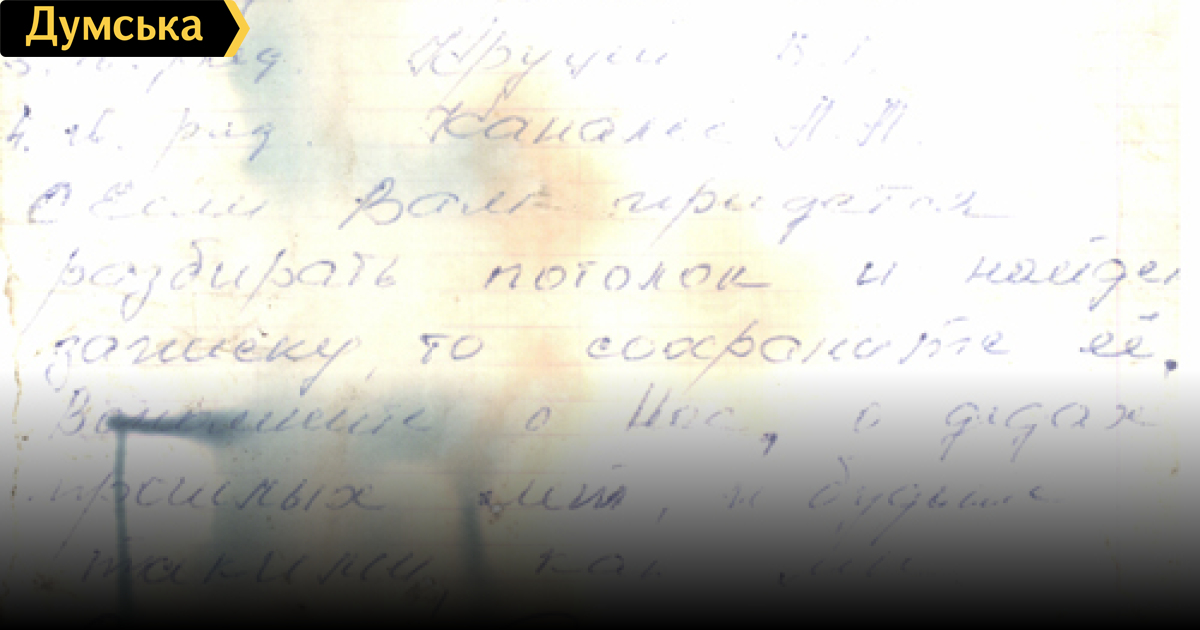 Думська
3. гв. ряд. Круции В.
4. гв. ряд. Каналес А. П.
Если Вам придется
разбирать потолок и найде
записку, то сохраните её.
Вспомните о Нас, о дедах
прошлых лет, и будьте
такими, как мы